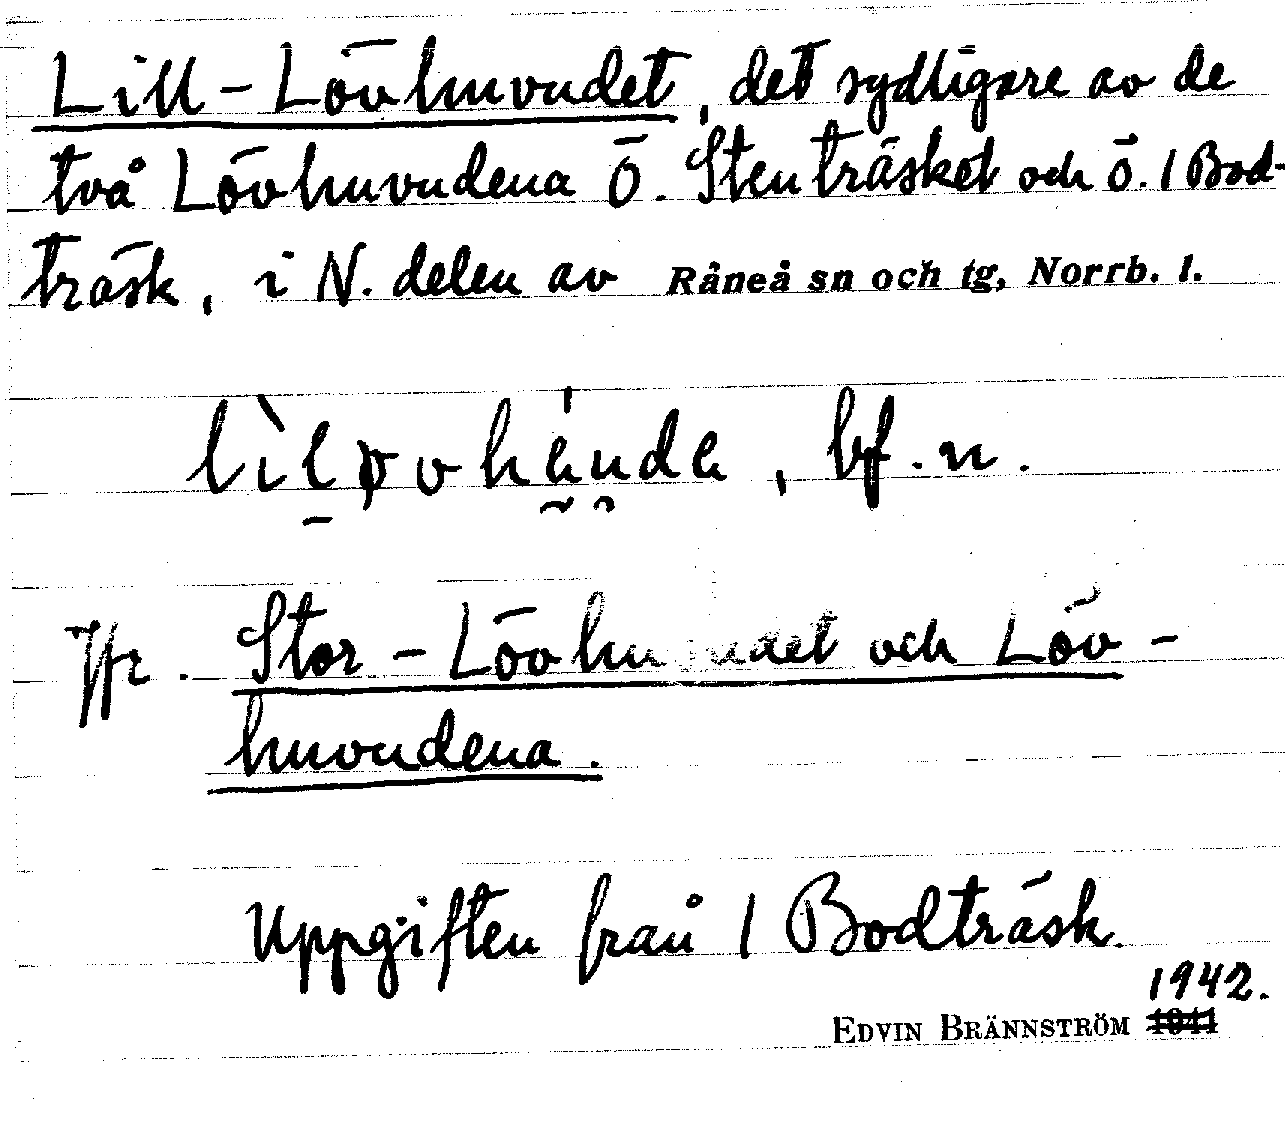 Lill-Lövhuvudet, det sydligare av de
två Lövhuvudena Ö. Stenträsket och Ö. 1 Bod-
träsk, i N. delen av Råneå sn och tg, Norrb. l.
bf. n.
Jfr. Stor-Lövhuvudet och Löv-
huvudena.
Uppgiften från 1 Bodträsk.
1942.
EDVIN BRÄNNSTRÖM 1941